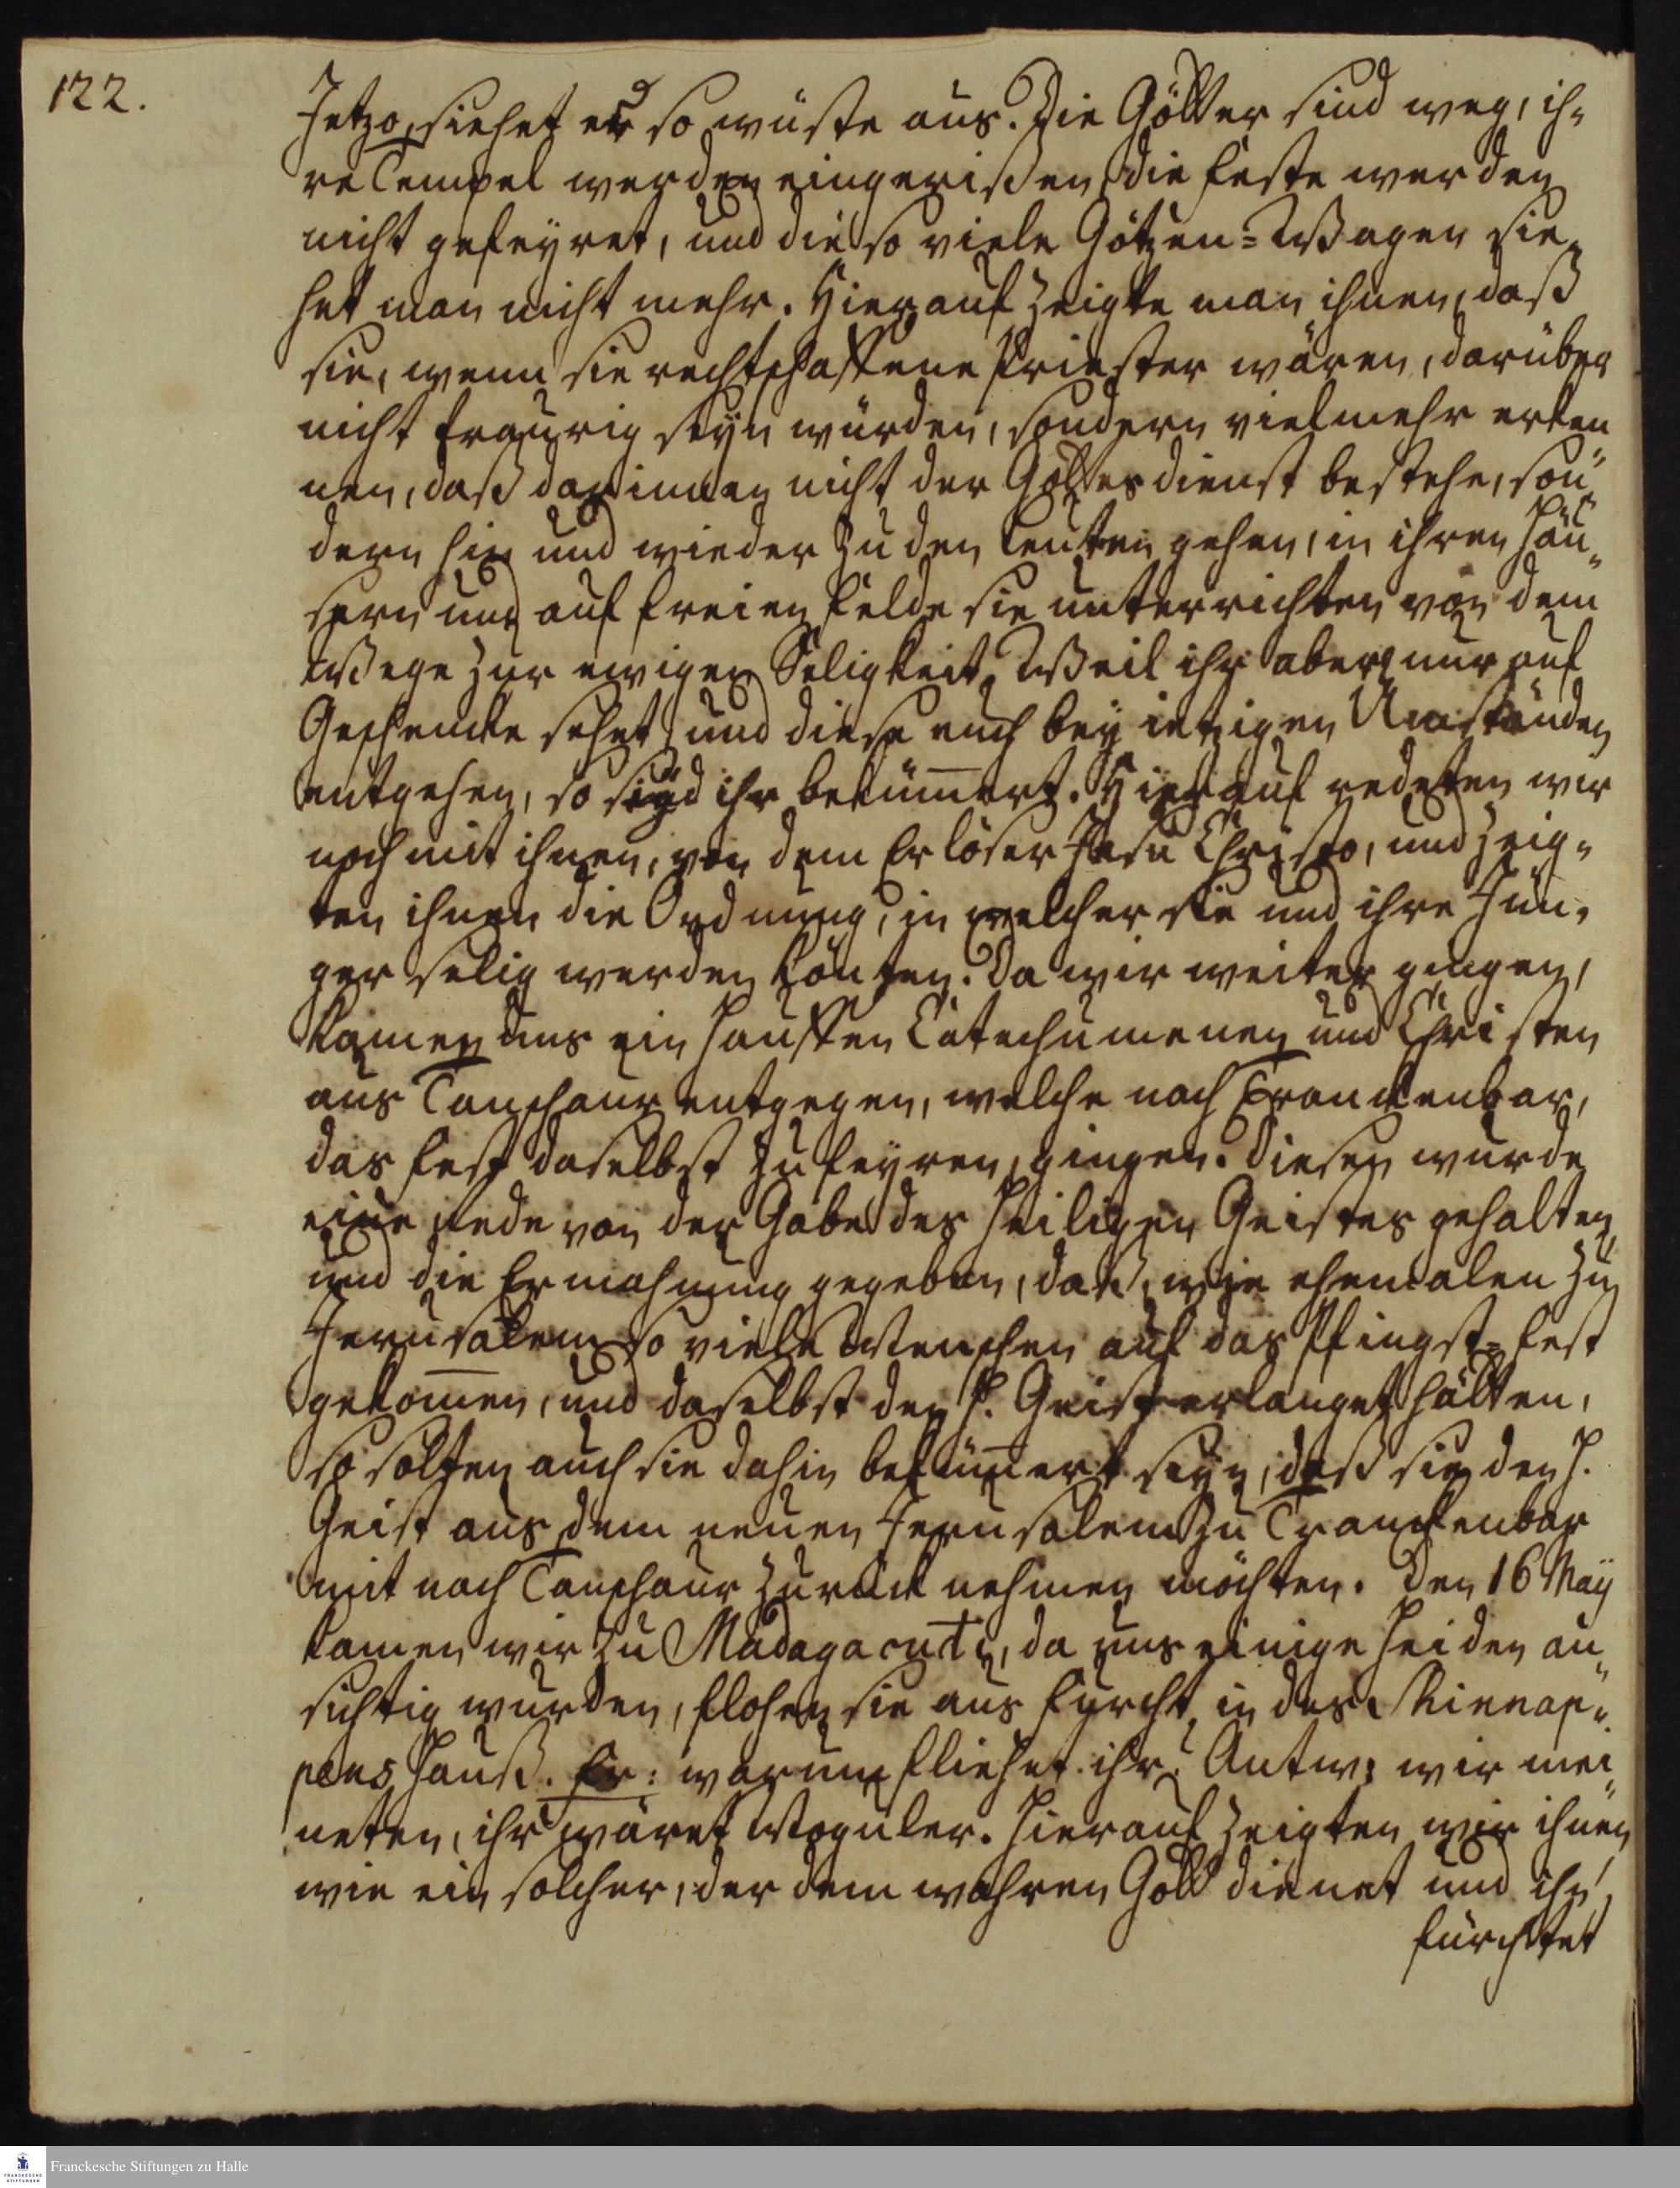 122.
Jetzo siehet es so wüste aus. Die Götter sind weg, ih-
re Tempel werden eingerißen, die Feste werden
nicht gefeyret, und die so viele Götzen-Wagen sie-
het man nicht mehr. Hierauf zeigte man ihnen, daß
sie, wenn sie rechtschaffene Priester wären, darüber
nicht traurig seyn würden, sondern vielmehr erken
nen, daß darinnen nicht der Gottesdienst bestehe, son-
dern hin und wieder zu den Leuten gehen, in ihren Häu-
sern und auf freien Felde sie unterrichten von dem
Wege zur ewigen Seligkeit. Weil ihr aber nur auf
Geschencke sehet, und diese euch bey ietzigen Umständen
entgehen, so seyd ihr bekümmert. Hierauf redeten wir
noch mit ihnen, von dem Erlöser Jesu Christo, und zeig-
ten ihnen die Ordnung, in welcher sie und ihre Jün-
ger selig werden könten. Da wir weiter gingen,
kamen uns ein Hauffen Catechumenen und Christen
aus Tanschaur entgegen, welche nach Tranckenbar,
das Fest daselbst zu feyren, gingen. Diesen wurde
eine Rede von der Gabe des Heiligen Geistes gehalten,
und die Ermahnung gegeben, daß, wie ehemalen zu
Jerusalem so viele Menschen auf das Pfingst-Fest
gekommen, und daselbst den H. Geist erlanget hätten,
so solten auch sie dahin bekümmert seyn, daß sie den H.
Geist aus dem neuen Jerusalem zu Tranckenbar
mit nach Tanschaur zurück nehmen möchten. Den 16 Maÿ
kamen wir zu Madagacudi, da uns einige Heiden an-
sichtig wurden, flohen sie aus Furcht, in des Rinnap-
pens Hauß. Fr: warum fliehet ihr? Antw: wir mei-
neten, ihr wäret Moguler. Hierauf zeigten wir ihnen
wie ein solcher, der dem wahren Gott dienet und ihn
fürchtet
Franckesche Stiftungen zu Halle